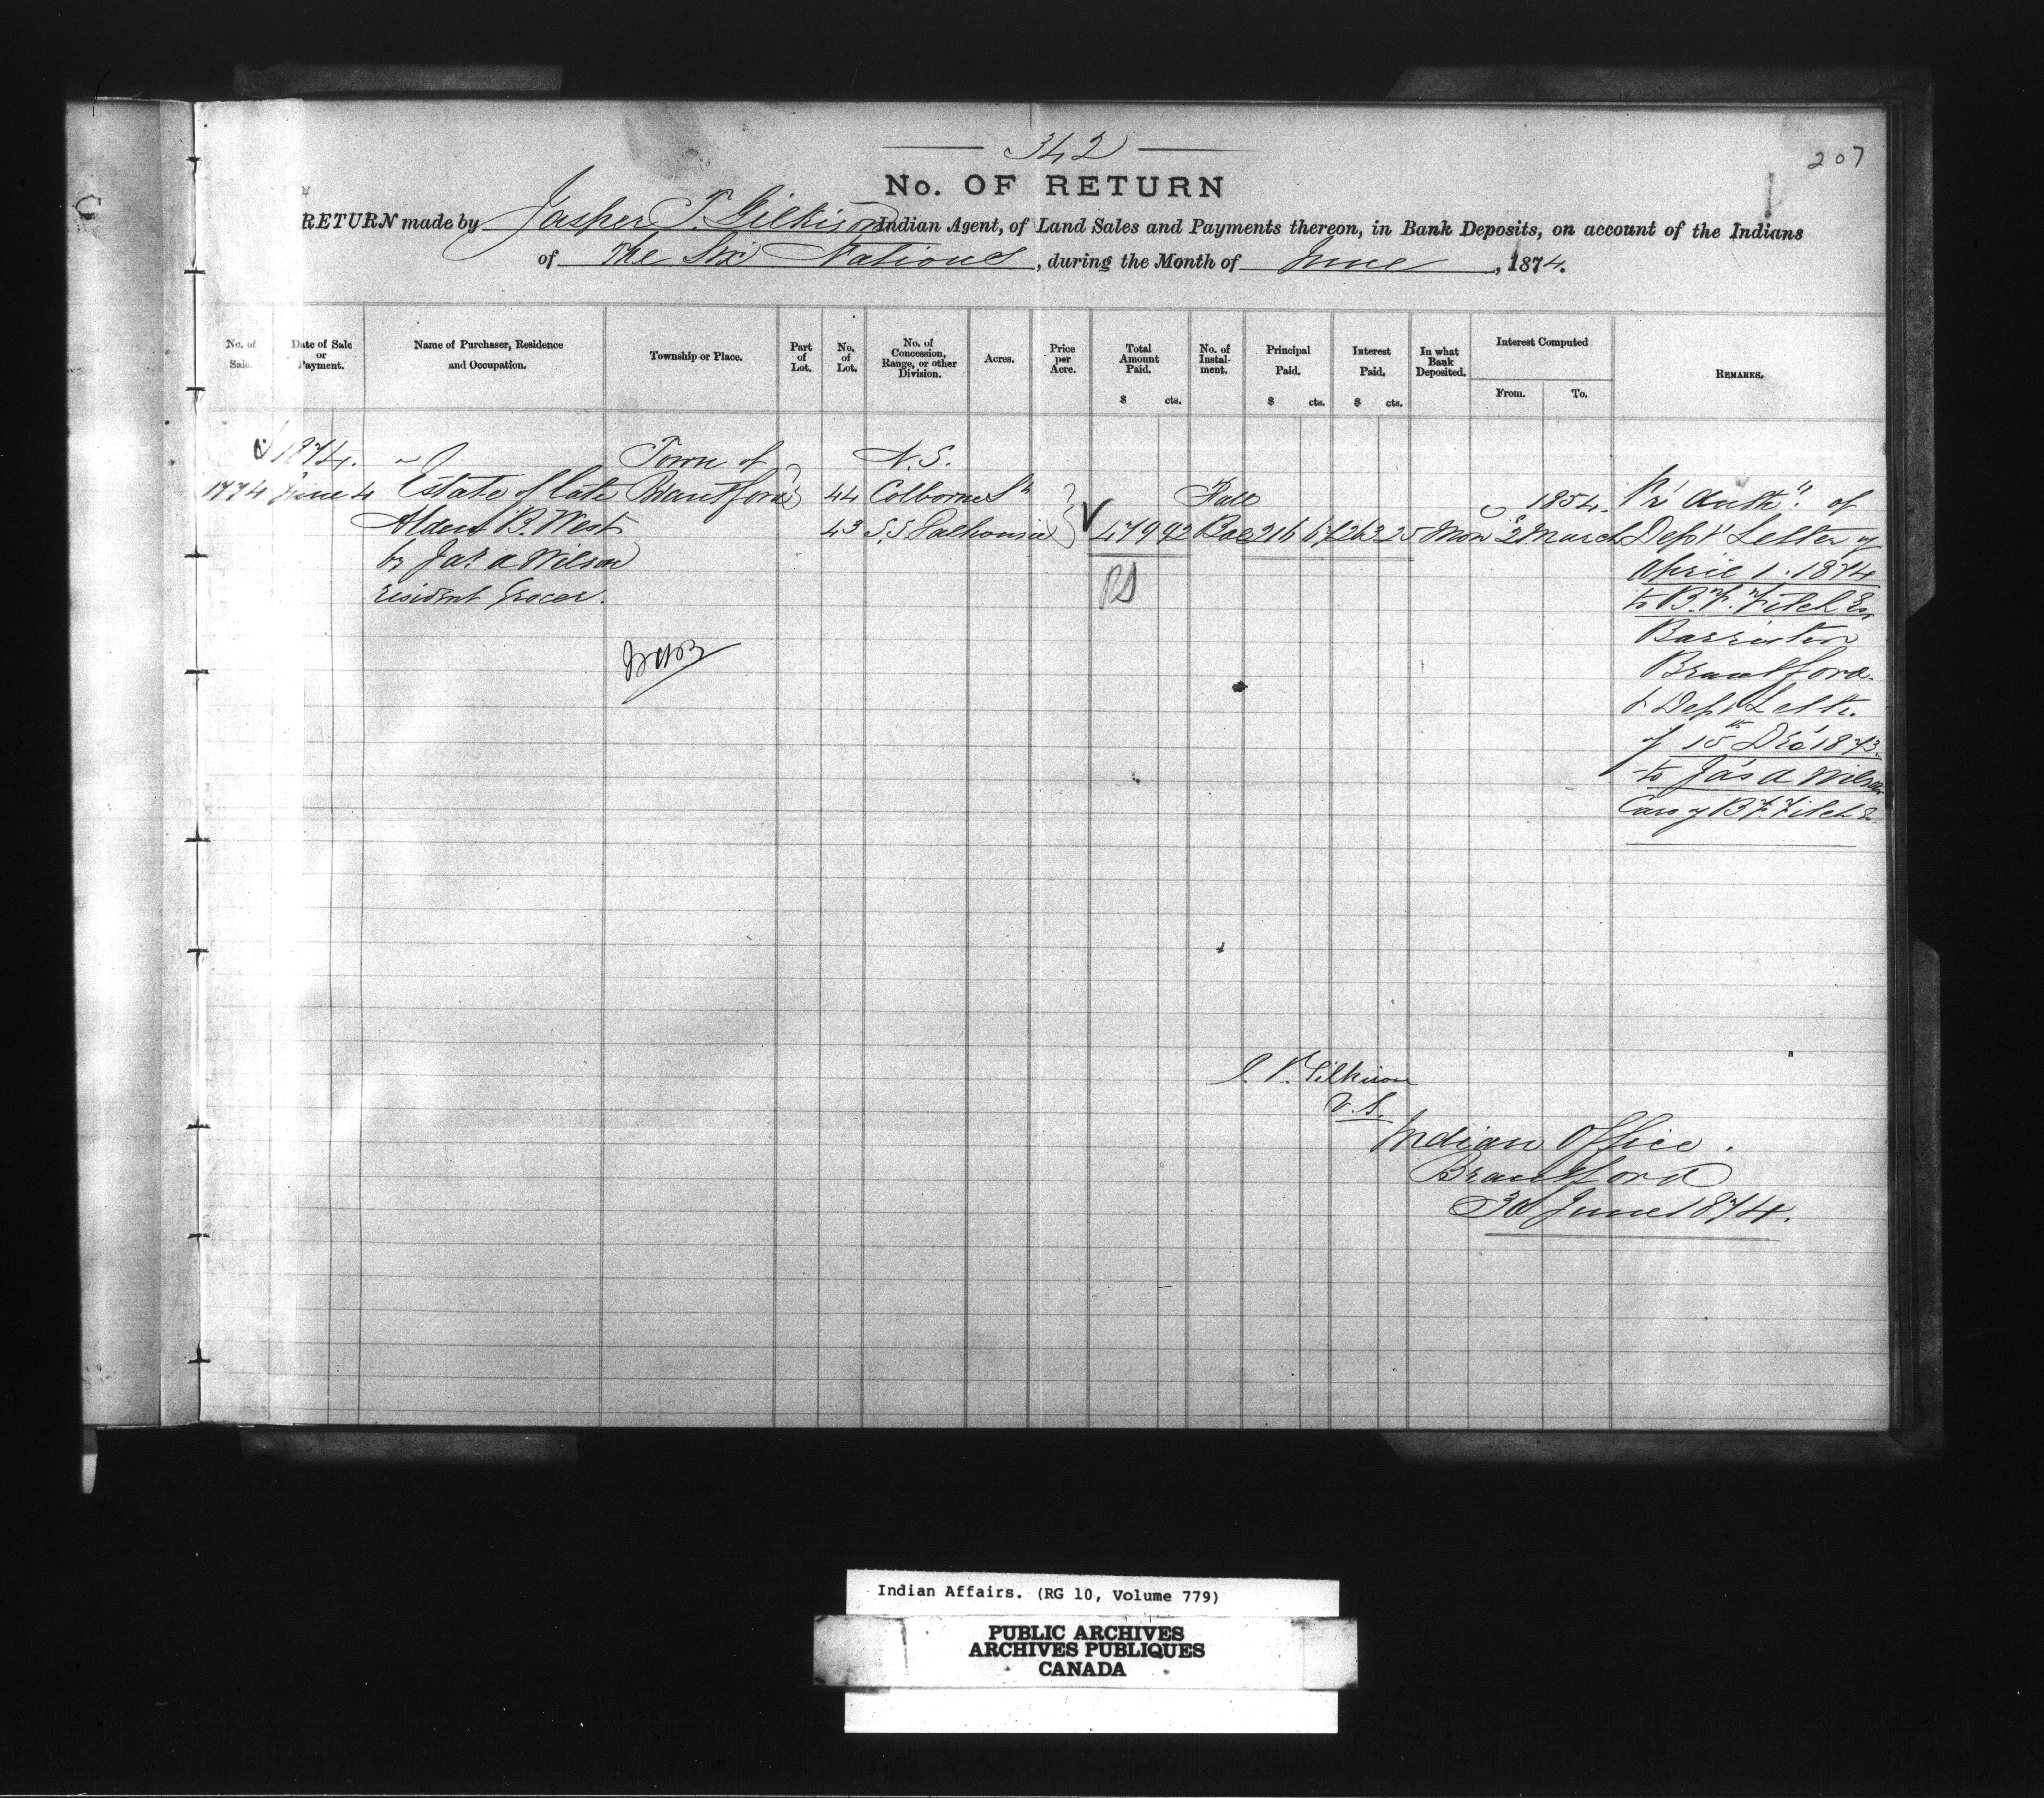 342
207
No. OF RETURN
RETURN made by Jasper T. Gilkison Indian Agent, of Land Sales and Payments thereon, in Bank Deposits, on account of the Indians
of The Six Nations, during the Month of June, 1874.
No. of Sale. Date of Sale or Payment. Name of Purchaser, Residence and Occupation. Township or Place. Part of Lot. No. of Lot. No. of Concession, Range, or other Division. Acres. Price per Acre. Total Amount Paid. $ cts. No. of Instal-ment. Principal Paid. $ cts. Interest Paid. $ cts. In what Bank Deposited. Interest Computed From. To. REMARKS.
1874. Town of N.S.
1774 June 4 Estate of late Brantford 44 Colborne St Full 1854. Pr Auth'y of
Alden B. West 43 S.S Dalhousie 479 92 Bal 216 67 263 25 Mon 2 March Dept Letter of
by Jas A Wilson April 1. 1874
resident Grocer. to B. F. Fitch Esq
Barrister
Brantford.
& Dept Letter
of 15th Dec 1873
to Jas A Wilson
Care of B F. Fitch E
J. T. Gilkison
V. S.
Indian Office.
Brantford
30 June 1874.
Indian Affairs. (RG 10, Volume 779)
PUBLIC ARCHIVES
ARCHIVES PUBLIQUES
CANADA